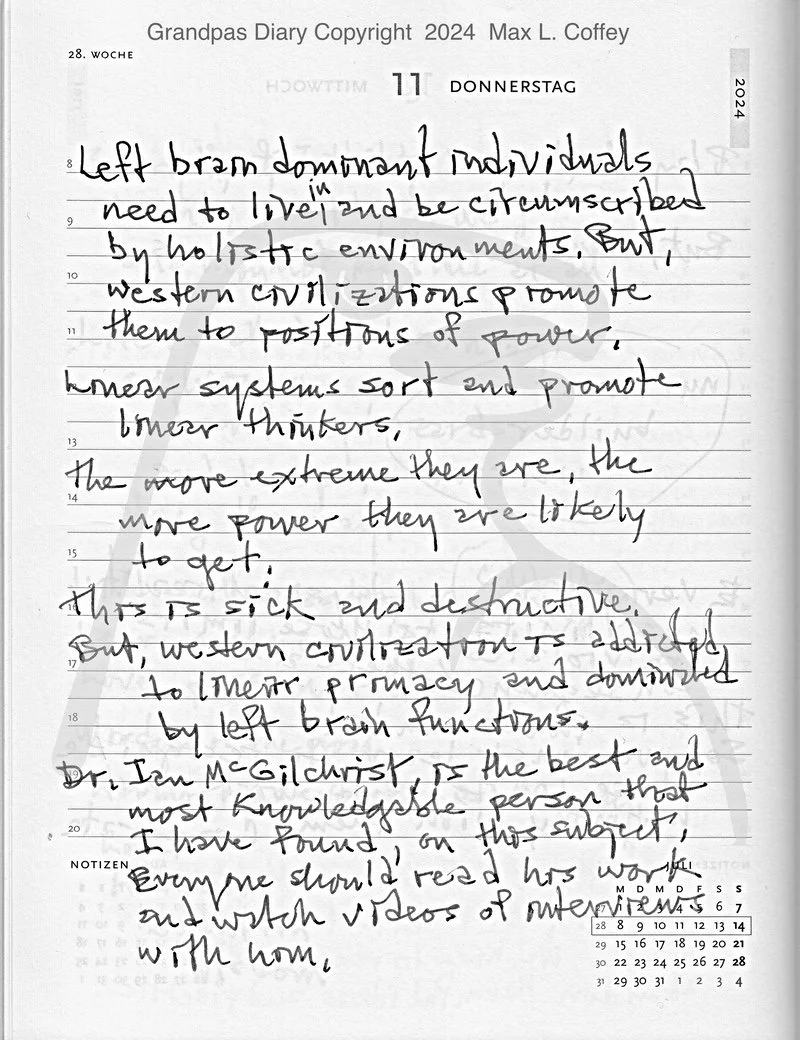 Grandpas Diary Copyright 2024 Max L. Coffey
28. WOCHE
11 DONNERSTAG
2024
MITTWOCH
8 Left brain dominant individuals
need to live in and be circumscribed
9
by holistic environments. But,
10
western civilizations promote
11 them to positions of power.
Linear systems sort and promote
linear thinkers,
13
the more extreme they are, the
14
more power they are likely
15 to get.
This is sick and destructive.
But, western civilization is addicted
17
to linear primacy and dominated
18 by left brain functions.
Dr. Ian McGilchrist, is the best and
most knowledgable person that
20 I have found, on this subject,
NOTIZEN Everyone should read his work
and watch videos of interviews
with him.
JULI
M D M D F S S
1 2 3 4 5 6 7
28 8 9 10 11 12 13 14
29 15 16 17 18 19 20 21
30 22 23 24 25 26 27 28
31 29 30 31 1 2 3 4